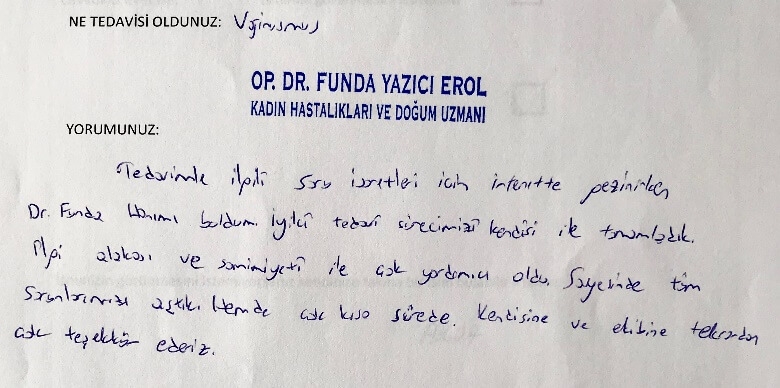 NE TEDAVİSİ OLDUNUZ: Vajinusmus
OP. DR. FUNDA YAZICI EROL
KADIN HASTALIKLARI VE DOĞUM UZMANI
YORUMUNUZ:
Tedavimle ilgili soru işaretleri için internette gezinirken
Dr. Funda Hanımı buldum. İyiki tedavi sürecimizi kendisi ile tamamladık.
İlgi alakası ve samimiyeti ile çok yardımcı oldu. Sayesinde tüm
sorunlarımızı aştık. Hemde çok kısa sürede. Kendisine ve ekibine tekrardan
çok teşekkür ederiz.